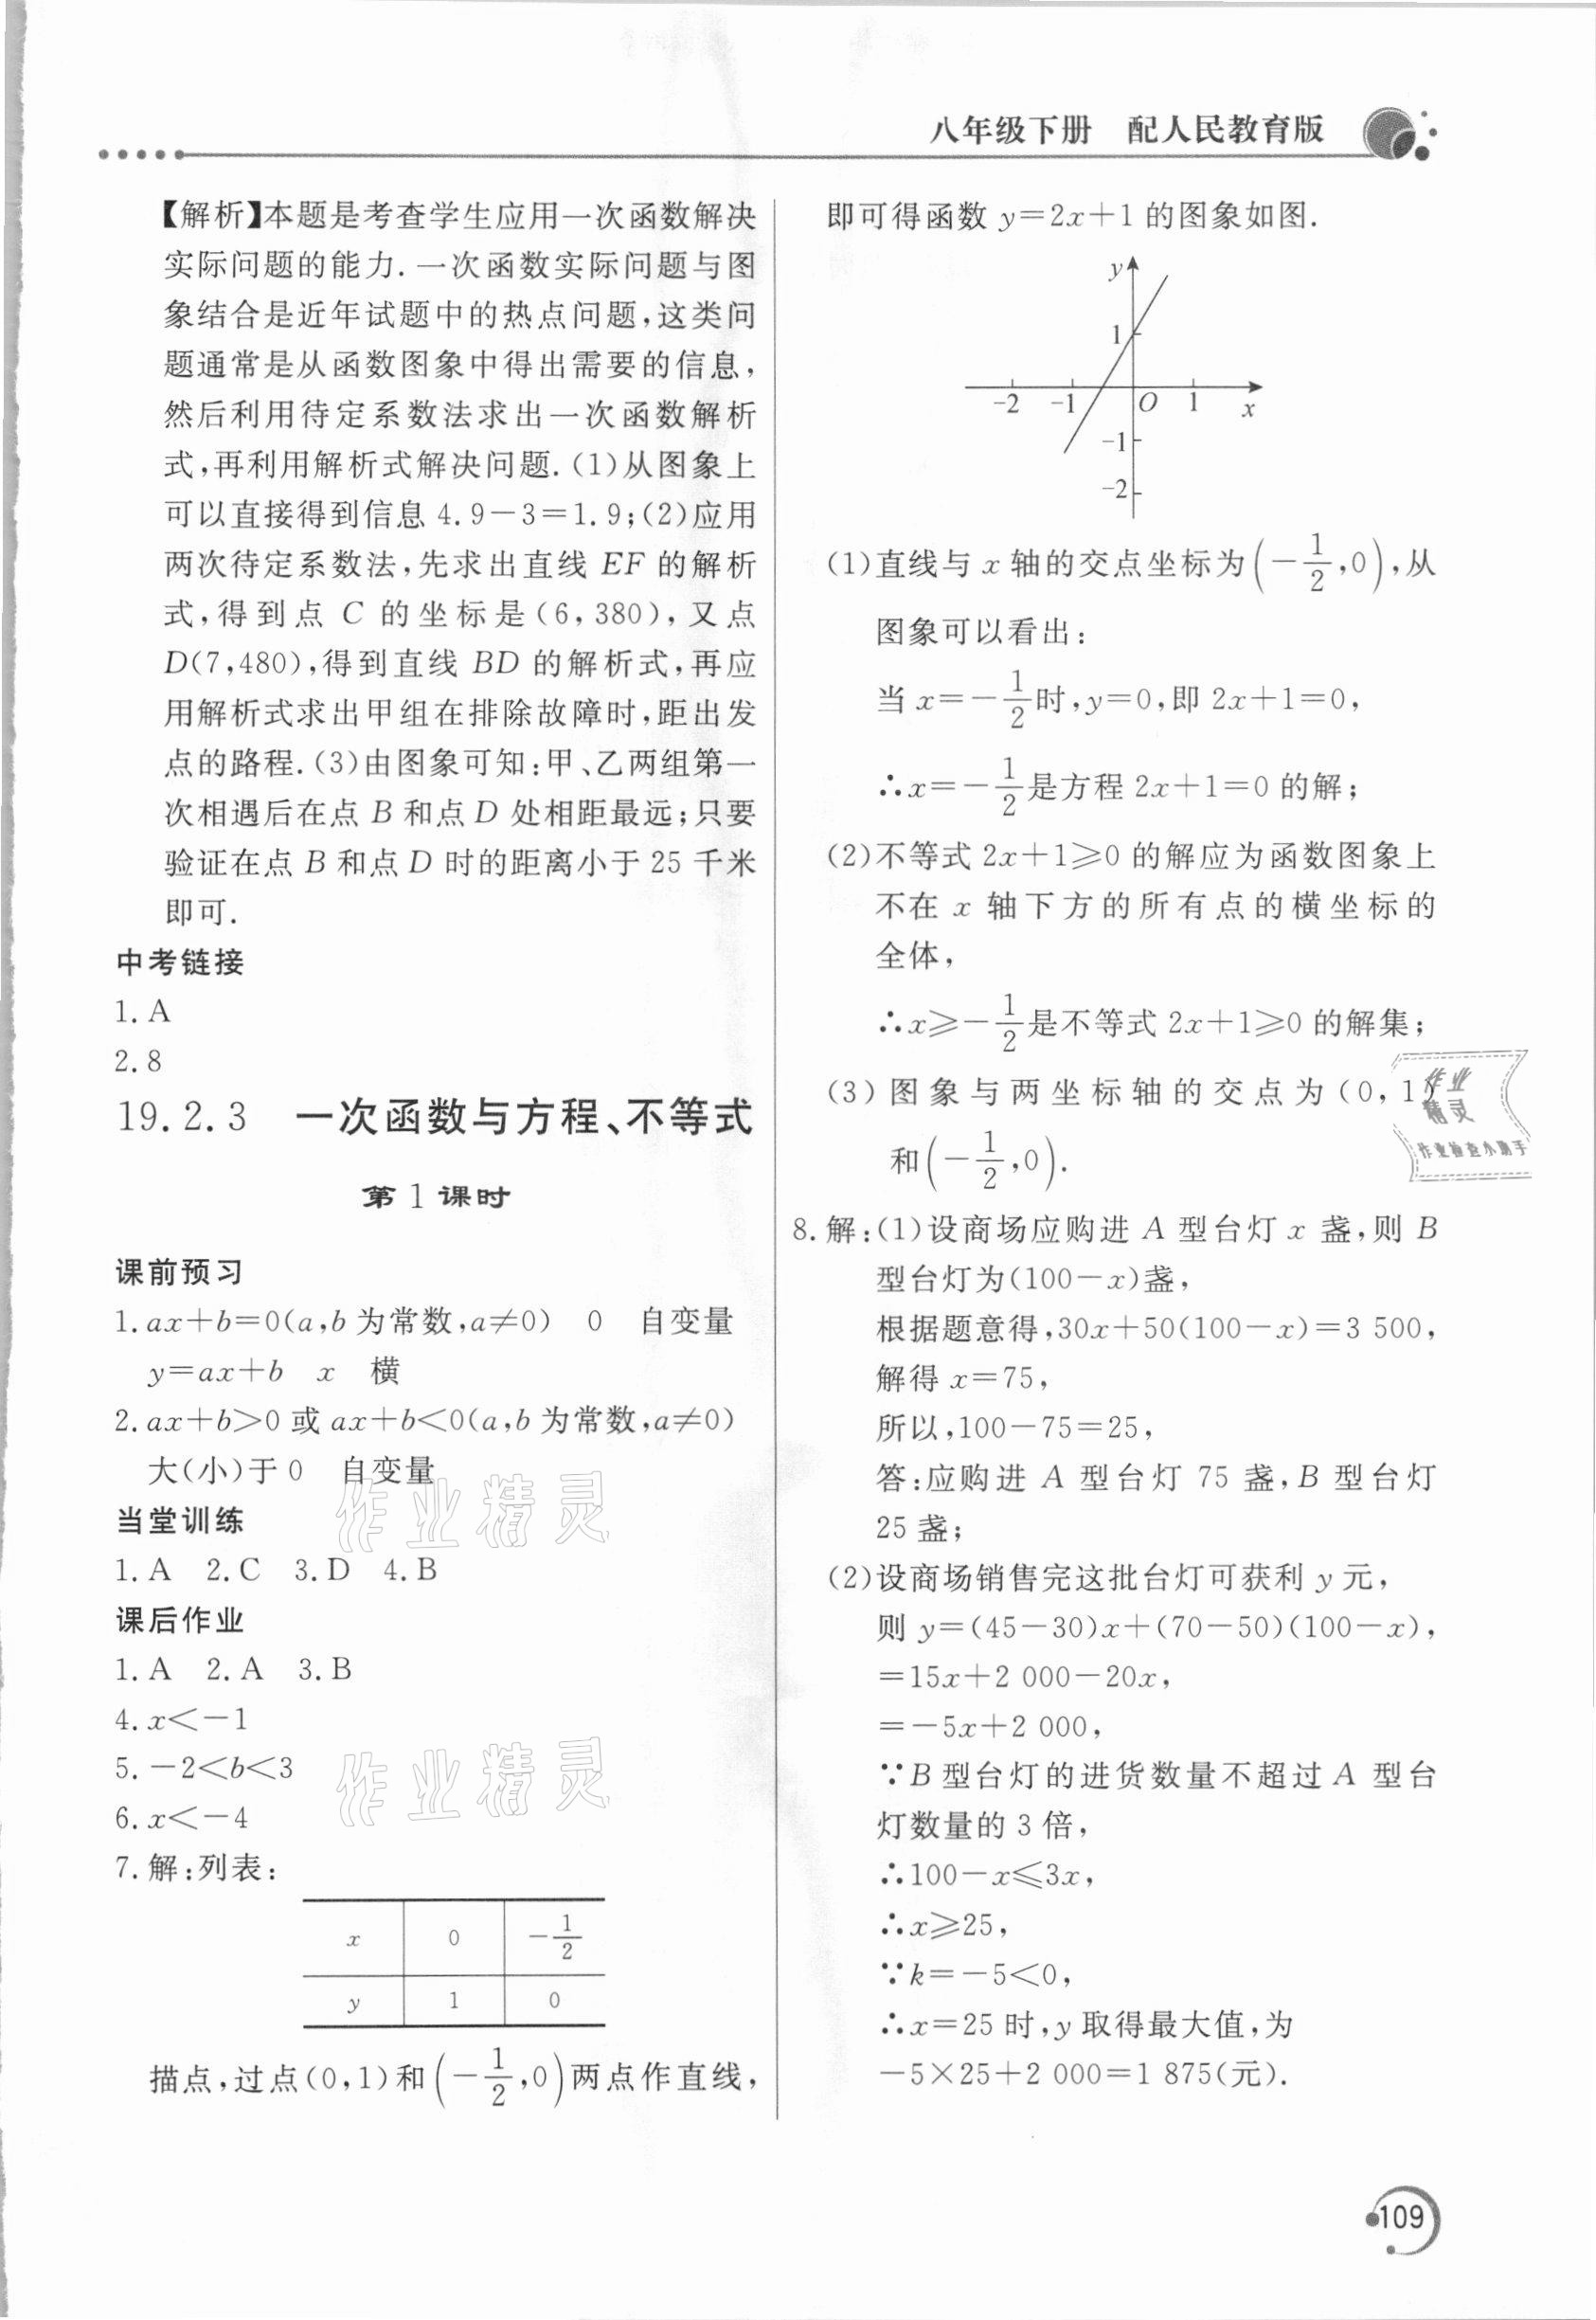 八年级下册　配人民教育版
【解析】本题是考查学生应用一次函数解决
实际问题的能力.一次函数实际问题与图
象结合是近年试题中的热点问题,这类问
题通常是从函数图象中得出需要的信息,
然后利用待定系数法求出一次函数解析
式,再利用解析式解决问题.(1)从图象上
可以直接得到信息4.9-3=1.9;(2)应用
两次待定系数法,先求出直线EF的解析
式,得到点C的坐标是(6,380),又点
D(7,480),得到直线BD的解析式,再应
用解析式求出甲组在排除故障时,距出发
点的路程.(3)由图象可知:甲、乙两组第一
次相遇后在点B和点D处相距最远;只要
验证在点B和点D时的距离小于25千米
即可.
中考链接
1.A
2.8
19.2.3　一次函数与方程、不等式
第1课时
课前预习
1.ax+b=0(a,b为常数,a≠0)　0　自变量
y=ax+b　x　横
2.ax+b>0或ax+b<0(a,b为常数,a≠0)
大(小)于0　自变量
当堂训练
1.A　2.C　3.D　4.B
课后作业
1.A　2.A　3.B
4.x<-1
5.-2<b<3
6.x<-4
7.解:列表:
x　0　-1/2
y　1　0
描点,过点(0,1)和(-1/2,0)两点作直线,
即可得函数y=2x+1的图象如图.
y
1
-2　-1　O　1　x
-1
-2
(1)直线与x轴的交点坐标为(-1/2,0),从
图象可以看出:
当x=-1/2时,y=0,即2x+1=0,
∴x=-1/2是方程2x+1=0的解;
(2)不等式2x+1≥0的解应为函数图象上
不在x轴下方的所有点的横坐标的
全体,
∴x≥-1/2是不等式2x+1≥0的解集;
(3)图象与两坐标轴的交点为(0,1)
和(-1/2,0).
8.解:(1)设商场应购进A型台灯x盏,则B
型台灯为(100-x)盏,
根据题意得,30x+50(100-x)=3 500,
解得x=75,
所以,100-75=25,
答:应购进A型台灯75盏,B型台灯
25盏;
(2)设商场销售完这批台灯可获利y元,
则y=(45-30)x+(70-50)(100-x),
=15x+2 000-20x,
=-5x+2 000,
∵B型台灯的进货数量不超过A型台
灯数量的3倍,
∴100-x≤3x,
∴x≥25,
∵k=-5<0,
∴x=25时,y取得最大值,为
-5×25+2 000=1 875(元).
作业
精灵
作业检查小助手
作业精灵
作业精灵
109